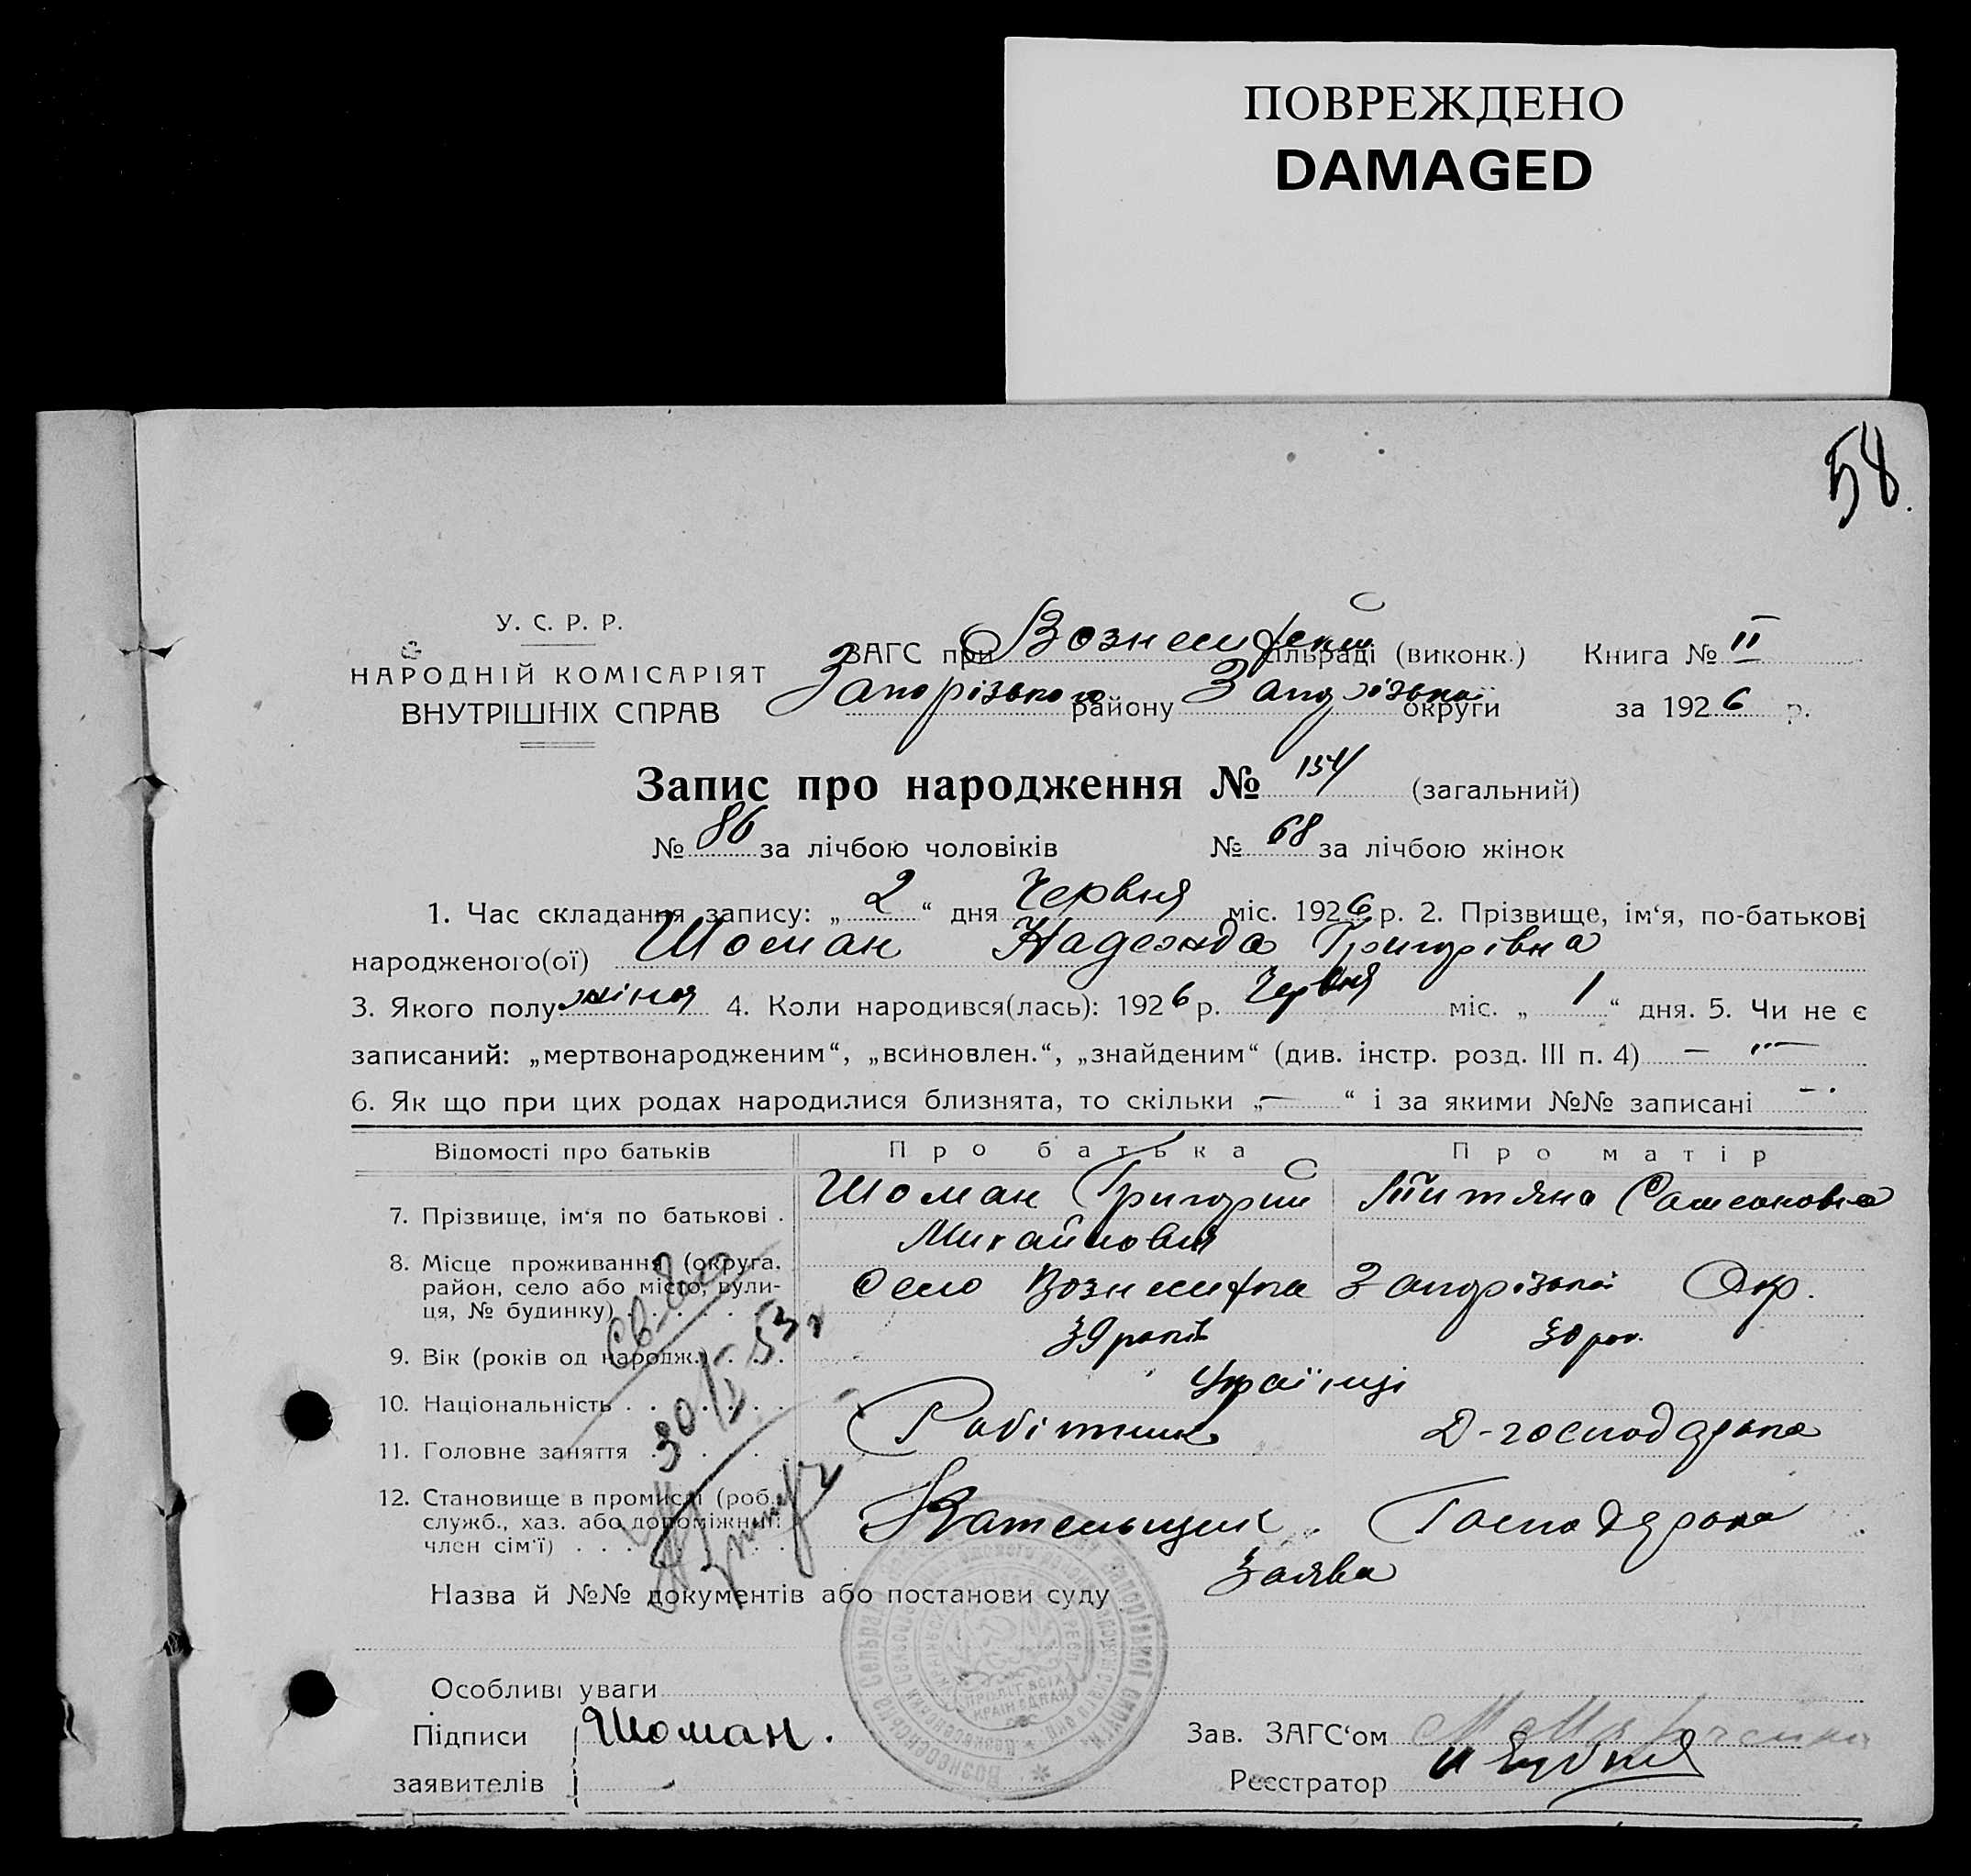 ПОВРЕЖДЕНО
DAMAGED
58.
У. С. Р. Р.
НАРОДНІЙ КОМІСАРІЯТ
ВНУТРІШНІХ СПРАВ
ЗАГС при сільраді (виконк.) Книга № II
Запорізького району Запорізької округи за 1926 р.
Запис про народження № 154 (загальний)
№ 86 за лічбою чоловіків № 68 за лічбою жінок
1. Час складання запису: „ 2 “ дня Червня міс. 1926 р. 2. Прізвище, ім‘я, по-батькові
народженого(ої) Шоман Надежда Григорівна
3. Якого полу: жіноч 4. Коли народився(лась): 1926 р. Червня міс. „ 1 “ дня. 5. Чи не є
записаний: „мертвонародженим“, „всиновлен.“, „знайденим“ (див. інстр. розд. III п. 4) —
6. Як що при цих родах народилися близнята, то скільки „—“ і за якими №№ записані —
Відомості про батьків Про батька Про матір
7. Прізвище, ім‘я по батькові . Шоман Григорий
Михайлович
8. Місце проживання (округа, район, село або місто, вули-ця, № будинку) село Запорізької Окр.
9. Вік (років од народж.) 39 років 30 рок.
10. Національність Українці
11. Головне заняття Робітник Д-господарка
12. Становище в промислі (роб., служб., хаз. або допоміжний член сім‘ї) Кательщик Господарка
Назва й №№ документів або постанови суду Заява
Особливі уваги
Підписи Шоман.
заявителів
Зав. ЗАГС‘ом
Реєстратор
30/I 53 г